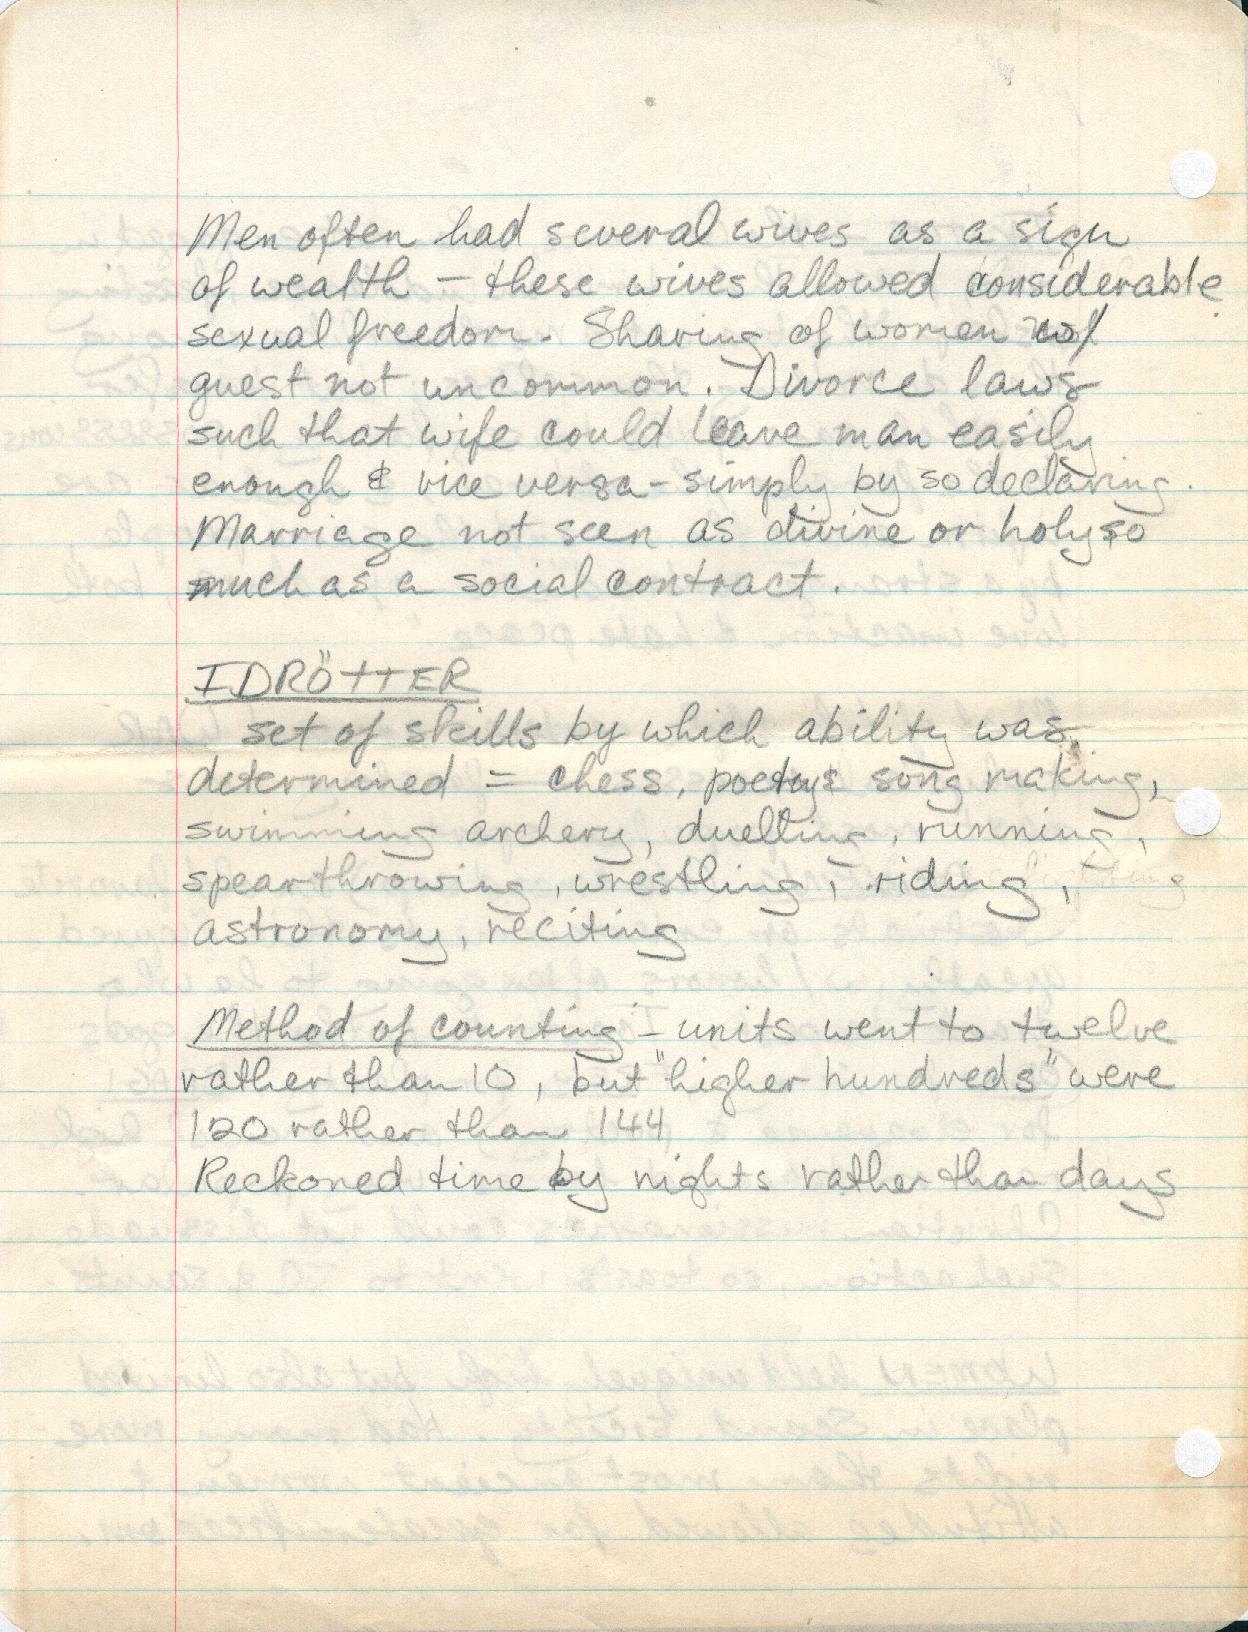 Men often had several wives as a sign
of wealth – these wives allowed considerable
sexual freedom. Sharing of women w/
guest not uncommon. Divorce laws
such that wife could leave man easily
enough & vice versa – simply by so declaring.
Marriage not seen as divine or holy so
much as a social contract.
IDRÖTTER
set of skills by which ability was
determined = chess, poetry & song making,
swimming archery, duelling, running,
spearthrowing, wrestling, riding,
astronomy, reciting
Method of counting – units went to twelve
rather than 10, but "higher hundreds" were
120 rather than 144
Reckoned time by nights rather than days